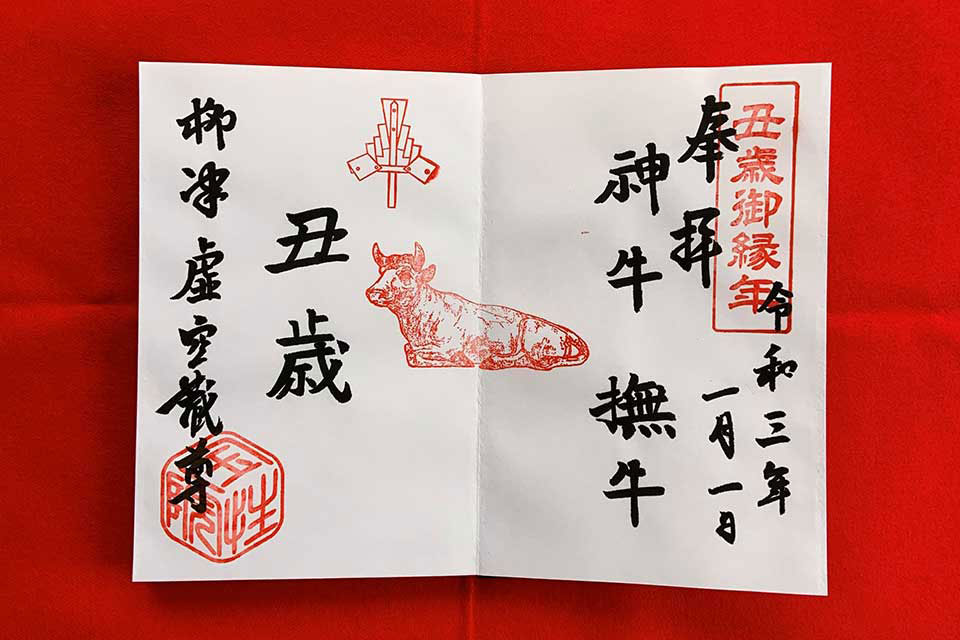 丑歳御縁年
令和三年
一月一日
奉拝
神牛撫牛
丑歳
柳津虚空蔵尊
宝性院